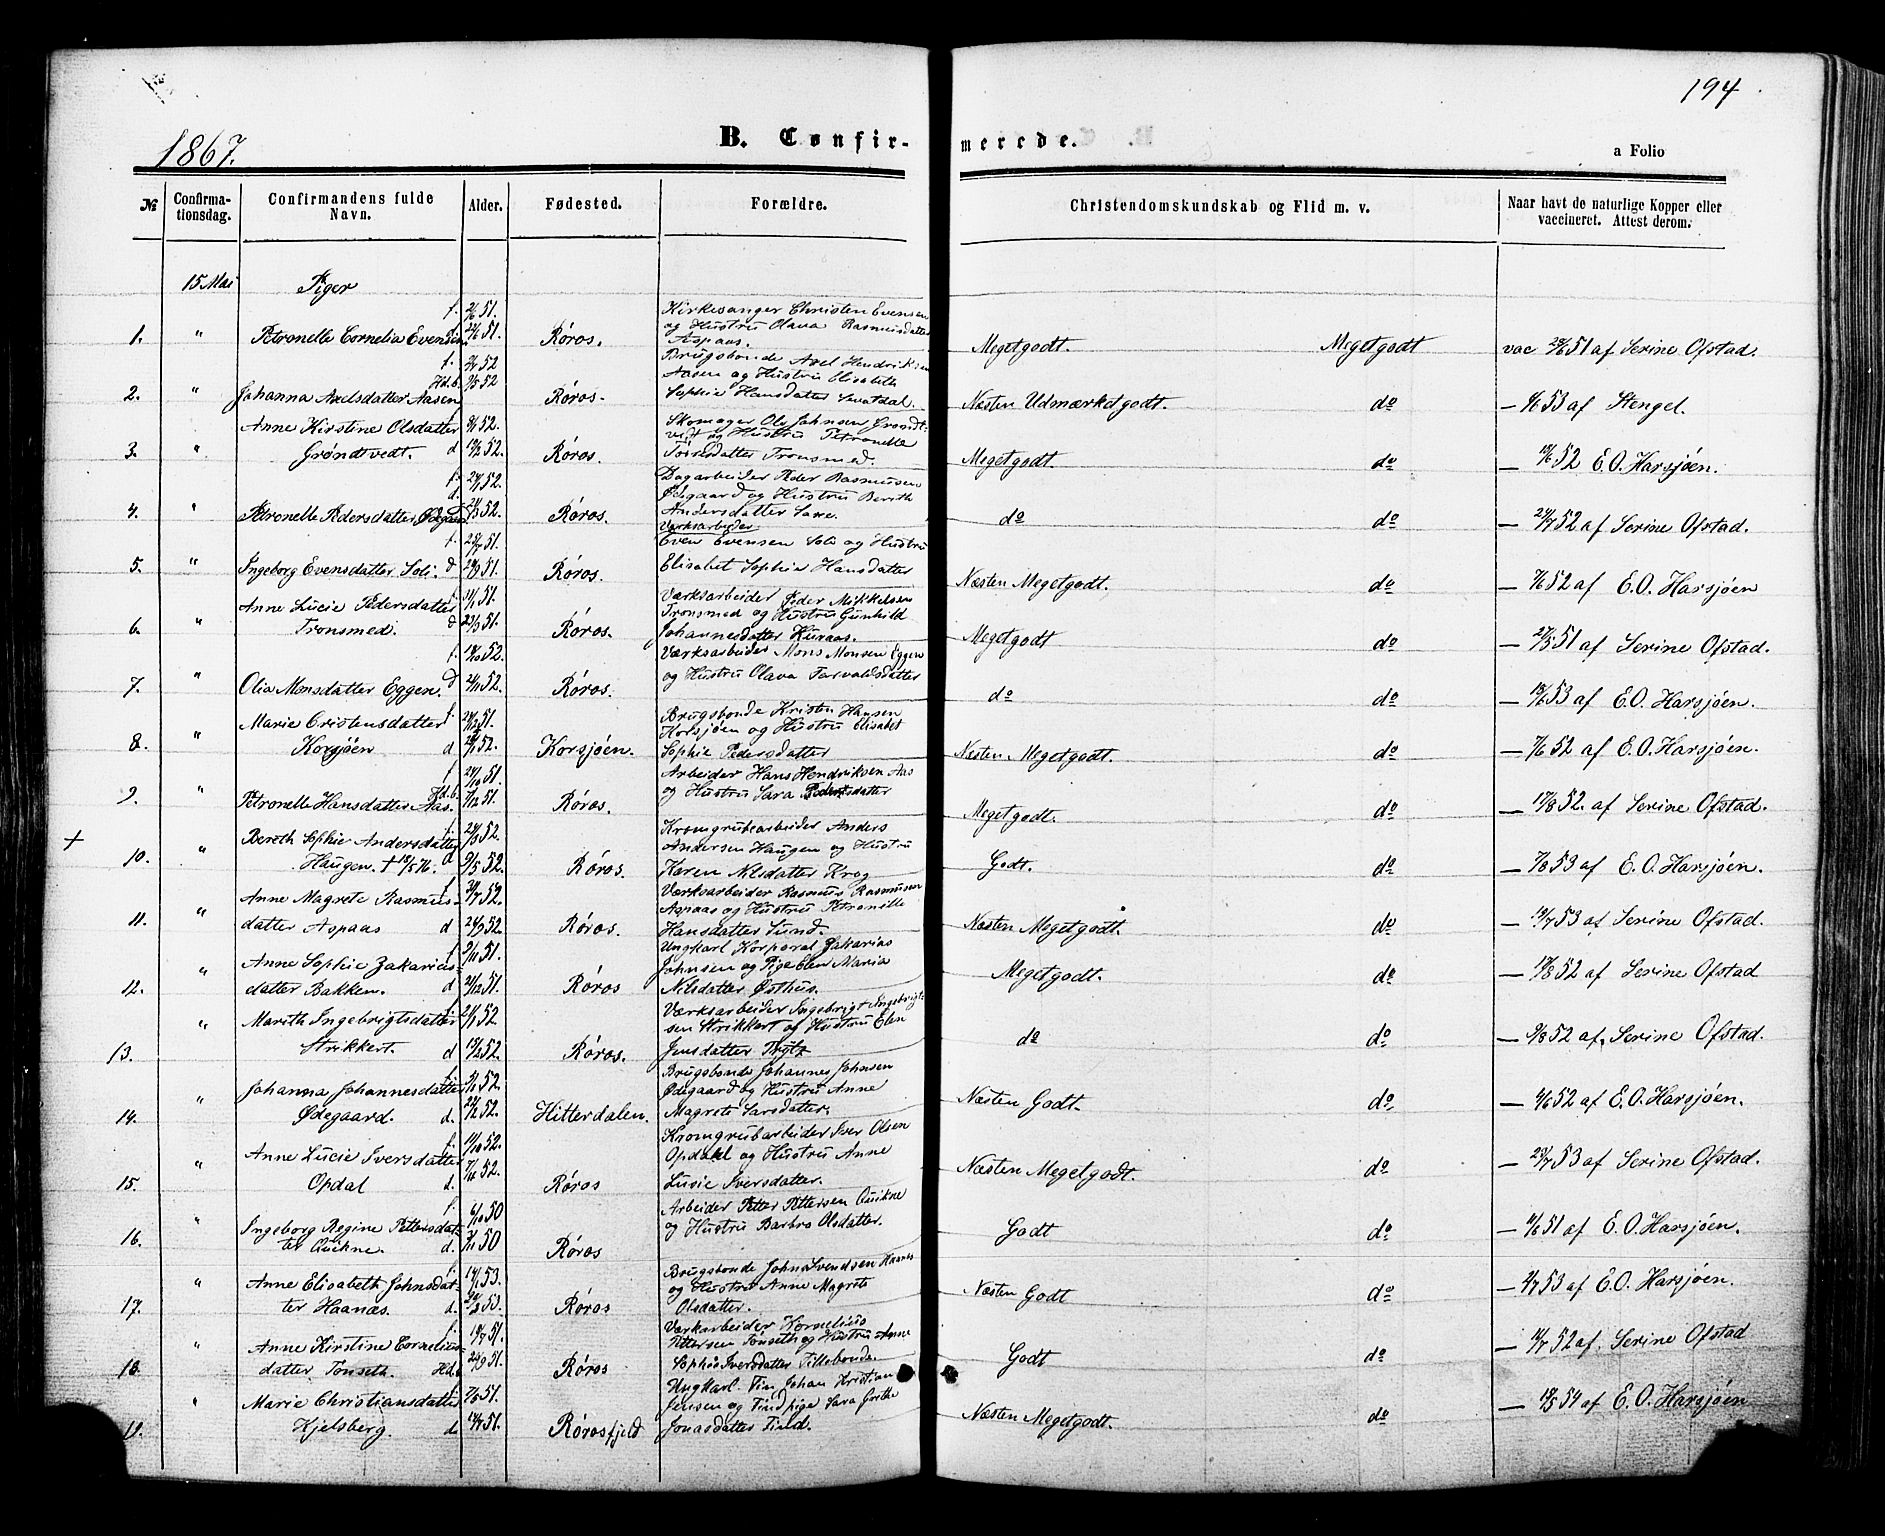 194
1867.
B. Confirmerede.
a Folio
№
Confirmationsdag.
Confirmandens fulde Navn.
Alder.
Fødested.
Forældre.
Christendomskundskab og Flid m. v.
Naar havt de naturlige Kopper eller vaccineret. Attest derom.
15 Mai Piger
1. " Petronelle Cornelia Evensen f. 51. 51. Røros.
Kirkesanger Christen Evensen
og Hustru Olava Rasmusdatter
Aspaas.
Megetgodt. Megetgodt vac 51 af Serine Ofstad.
2. " Johanna Axelsdatter Aasen f. 52 Hd.b. 52 Røros.
Brugsbonde Axel Hendriksen
Aasen og Hustru Elisabeth
Sophie Hansdatter
Næsten Udmærketgodt. do — 53 af Stengel.
3. " Anne Kirstine Olsdatter
Grøndtvedt. f 52. d 52. Røros.
Skomager Ole Johnsen Grøndt-
vedt og Hustru Petronelle
Tronsmed.
Megetgodt. do — 52 E. O. Harsjøen.
4. " Petronelle Pedersdatter Ødegaard f. 52. d. 52. Røros.
Dagarbeider Peder Rasmusen
Ødegaard og Hustru Berith
Andersdatter
do do — 52 af Serine Ofstad.
5. " Ingeborg Evensdatter Soli. f. 51. d 51. Røros.
Værksarbeider
Even Evensen Soli og Hustru
Elisabet Sophie Hansdatter
Næsten Megetgodt. do — 7/6 52 af E. O. Harsjøen
6. " Anne Lucie Pedersdatter
Tronsmed. f 51. d 51. Røros.
Værksarbeider Peder Mikkelsen
Tronsmed og Hustru Gunhild
Johannesdatter Kuraas.
Megetgodt do — 27/5 51 af Serine Ofstad.
7. " Olia Monsdatter Eggen. f. 52. d 52. Røros.
Værksarbeider Mons Monsen Eggen
og Hustru Olava Torvaldsdatter
do do — 53 af E. O. Harsjøen.
8. " Marie Cristensdatter
Korsjøen f. 51. d 52. Korsjøen.
Brugsbonde Kristen Hansen
Korsjøen og Hustru Elisabet
Sophie Pedersdatter
Næsten Megetgodt. do — 7/6 52 af E. O. Harsjøen.
9. " Petronelle Hansdatter Aas. f 51. Hd.b. 7/12 51. Røros.
Arbeider Hans Hendriksen Aas
og Hustru Sara Pedersdatter
Megetgodt. do — 17/8 52. af Serine Ofstad.
+ 10. " Bereth Sophie Andersdatter
Haugen. † 76. f. 52. d 9/5 52. Røros.
Kromgrubearbeider Anders
Andersen Haugen og Hustru
Karen Nilsdatter Krog
Godt. do — 7/8 53 af E. O. Harsjøen.
11. " Anne Magrete Rasmus-
datter Aspaas f 52. d 52. Røros.
Værksarbeider Rasmus Rasmusen
Aspaas og Hustru Petronille
Hansdatter Sund.
Næsten Megetgodt. do — 53 af Serine Ofstad.
12. " Anne Sophie Zakarias-
datter Bakken. f 51. d 51. Røros
Ungkarl Korporal Zakarias
Johnsen og Pige Elen Maria
Nilsdatter Østhus.
Megetgodt. do — 17/8 52 af Serine Ofstad
13. " Marith Ingebrigtsdatter
Strikkert. f 52. d 52. Røros.
Værksarbeider Ingebrigt Ingebrigt-
sen Strikkert og Hustru Elen
Jensdatter
do do — 9/8 52 af. Serine Ofstad.
14. " Johanna Johannesdatter
Ødegaard. f. 52. d. 52. Hitterdalen.
Brugsbonde Johannes Johnsen
Ødegaard og Hustru Anne
Magrete Larsdatter
Næsten Godt. do — 52 af E. O. Harsjøen.
15. " Anne Lucie Iversdatter
Opdal f. 52. d. 52. Røros
Kromgrubarbeider Iver Olsen
Opdahl og Hustru Anne
Lusie Iversdatter.
Næsten Megetgodt. do — 53 af Serine Ofstad.
16. " Ingeborg Regine Pettersdat-
ter Quikne. f. 50 d. 50 Røros
Arbeider Petter Pettersen Quikne
og Hustru Barbro Olsdatter.
Godt do — 51 af E. O. Harsjøen.
17. " Anne Elisabeth Johnsdat-
ter Haanæs. f. 53. d. 53. Røros
Brugsbonde John Svendsen Haanes
og Hustru Anne Magrete
Olsdatter.
Næsten Godt do — 53 af E. O. Harsjøen.
18. " Anne Kirstine Cornelius-
datter Tønseth. f. 51. Hd. 51. Røros
Værkarbeider Kornelius
Pettersen Tønseth og Hustru Anne
Sophie Iversdatter
Godt do — 52 af. Serine Ofstad
19. " Marie Christiansdatter
Kjelsberg. f. 51. d. 51. Rørosfjeld
Ungkarl. Fin Johan Kristian
Jensen og Findpige Sara Grethe
Jonasdatter Find.
Næsten Megetgodt. do — 54 af E. O. Harsjøen